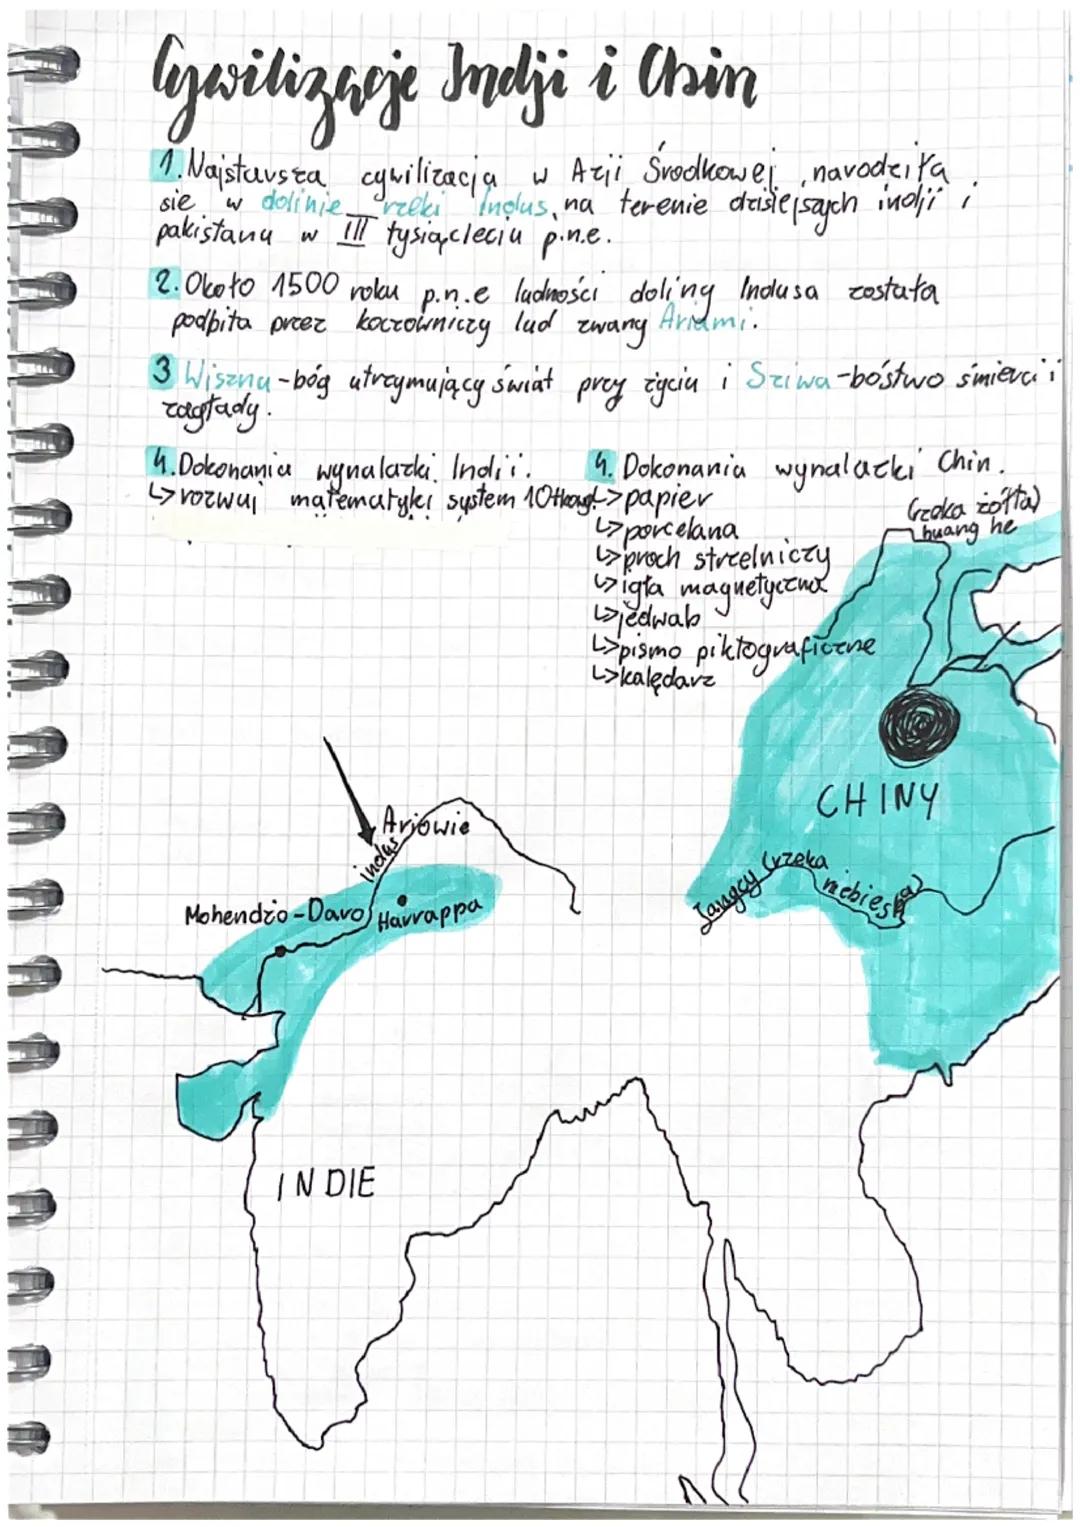 Cywilizacje Indji i Chin
1. Najstarsza cywilizacja w Azji Środkowej, narodziła
sie w dolinie rzeki Indus, na terenie dzisiejszych indji i
pakistanu w III tysiącleciu p.n.e.
2. Około 1500 roku p.n.e ludności doliny Indusa została
podbita przez koczowniczy lud zwany Ariami.
3 Wisznu - bóg utrzymujący świat przy życiu i Sziwa - bóstwo śmierci i
zagłady.
4. Dokonania wynalazki Indii.
↳ rozwuj matematyki system 10tkowy
4. Dokonania wynalazki Chin.
↳ papier
↳ porcelana
↳ proch strzelniczy
↳ igła magnetyczna
↳ jedwab
↳ pismo piktograficzne
↳ kalędarz
(rzeka żółta)
huang he
CHINY
Jangcy (rzeka niebieska)
Ariowie
indus
Mohendżo-Daro
Harrappa
INDIE